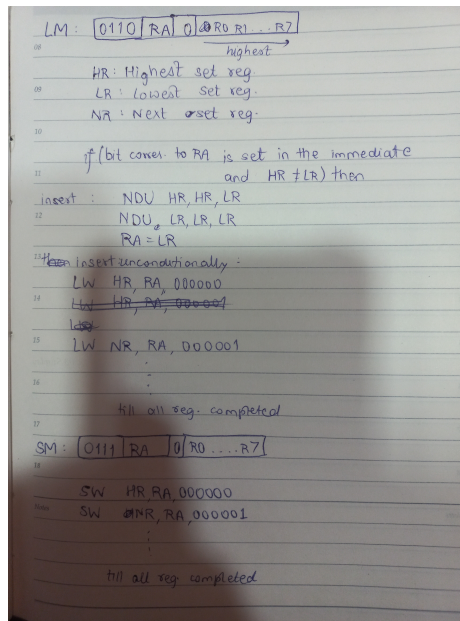 LM: 0110 RA 0 R0 R1 ... R7
highest
HR: Highest set reg.
LR: Lowest set reg.
NR: Next set reg.
if (bit corres. to RA is set in the immediate
and HR ≠ LR) then
insert: NDU HR, HR, LR
NDU LR, LR, LR
RA = LR
insert unconditionally:
LW HR, RA, 000000
LW HR, RA, 000001
LW NR, RA, 000001
till all reg. completed
SM: 0111 RA 0 R0 .... R7
SW HR, RA, 000000
SW NR, RA, 000001
till all reg. completed